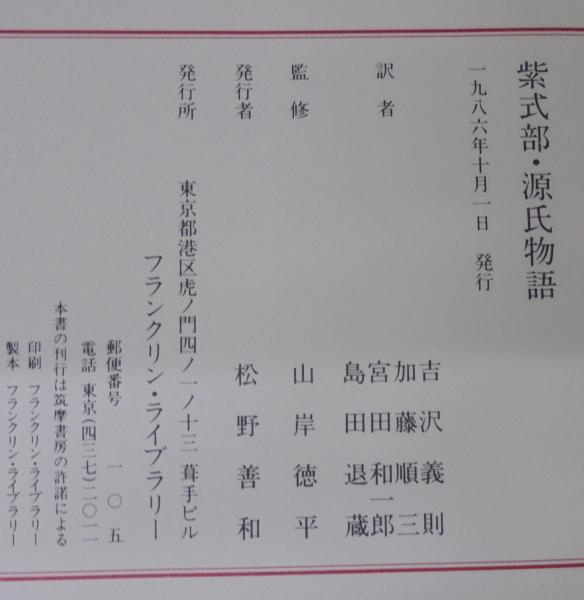 紫式部・源氏物語
一九八六年十月一日 発行
訳者 吉沢義則
加藤順三
宮田和一郎
島田退蔵
監修 山岸徳平
発行者 松野善和
発行所 東京都港区虎ノ門四ノ一ノ十三 葺手ビル
フランクリン・ライブラリー
郵便番号 一〇五
電話 東京(四三七)二〇二一
本書の刊行は筑摩書房の許諾による
印刷 フランクリン・ライブラリー
製本 フランクリン・ライブラリー